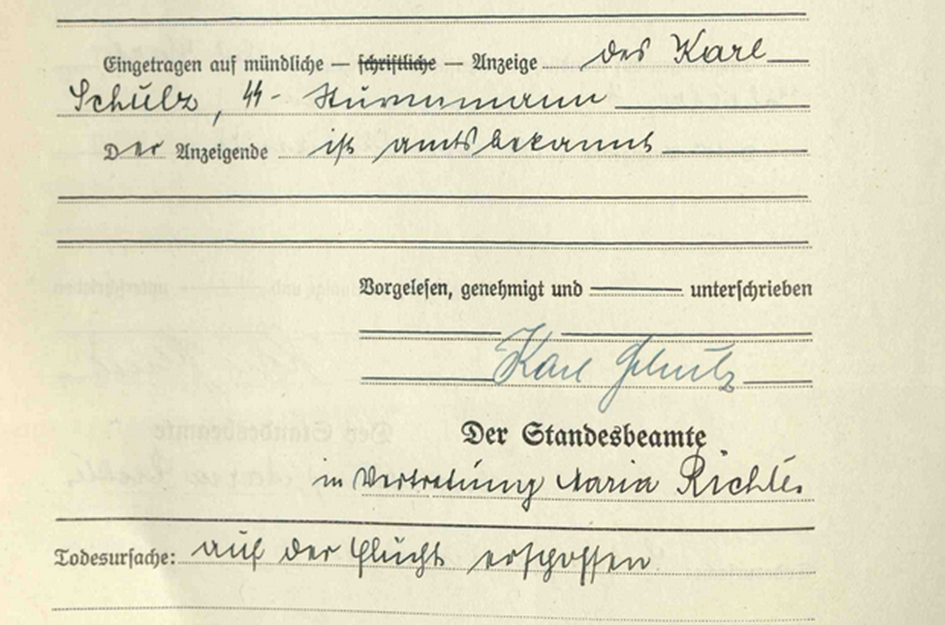 Eingetragen auf mündliche — schriftliche — Anzeige des Karl
Schulz, SS-Sturmmann
Der Anzeigende ist amtsbekannt
Vorgelesen, genehmigt und unterschrieben
Karl Schulz
Der Standesbeamte
in Vertretung Maria Richter
Todesursache: auf der Flucht erschossen